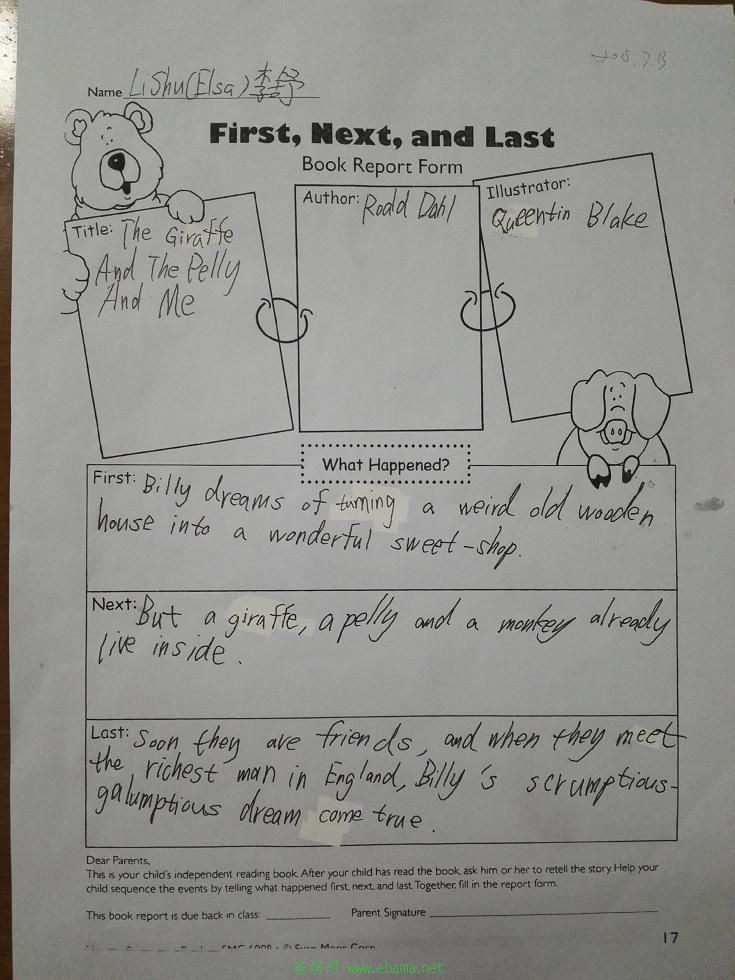 2015.7.13
Name LiShu(Elsa)
First, Next, and Last
Book Report Form
Title: The Giraffe
And The Pelly
And Me
Author: Roald Dahl
Illustrator:
Queentin Blake
What Happened?
First: Billy dreams of turning a weird old wooden
house into a wonderful sweet-shop.
Next: But a giraffe, a pelly and a monkey already
live inside.
Last: Soon they are friends, and when they meet
the richest man in England, Billy's scrumptious-
galumptious dream come true.
Dear Parents,
This is your child's independent reading book. After your child has read the book, ask him or her to retell the story. Help your
child sequence the events by telling what happened first, next, and last. Together, fill in the report form.
This book report is due back in class: Parent Signature
17
www.ebama.net